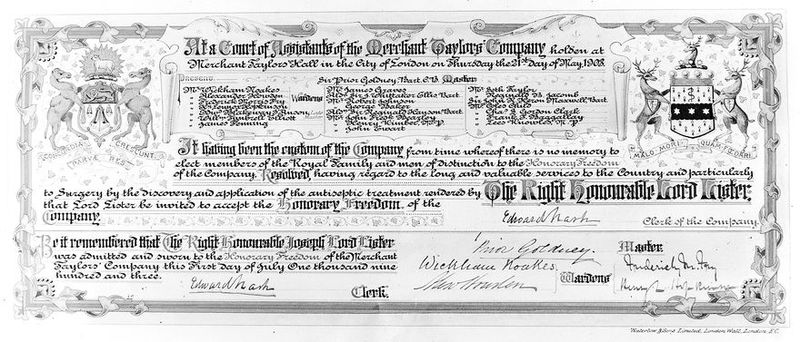 At a Court of Assistants of the Merchant Taylors' Company, holden at
Merchant Taylors' Hall in the City of London on Thursday the 21st day of May, 1903.
Present.
Sir Prior Goldney, Bart. C.B. Master
Mr. Wickham Noakes
Alexander Howden
Frederick Morris Fry
Wardens
Janes Fenning
Mr. James Graves
Aldn. Sir G. Whittaker Ellis Bart.
Mr. Robert Johnson
George Baker
John Ewart
Mr. Seth Taylor
Reginald B. Jacomb
Sir John R. Heron Maxwell, Bart.
Lees Knowles, M.P.
CONCORDIA PARVÆ RES CRESCUNT
MALO MORI QUAM FŒDARI
It having been the custom of the Company from time whereof there is no memory to
elect members of the Royal Family and men of distinction to the Honorary Freedom
of the Company, Resolved, having regard to the long and valuable services to the Country and particularly
to Surgery by the discovery and application of the antiseptic treatment rendered by The Right Honourable Lord Lister,
that Lord Lister be invited to accept the Honorary Freedom of the
Company.
Edward Nash
Clerk of the Company.
Be it remembered that The Right Honourable Joseph, Lord Lister
was admitted and sworn to the Honorary Freedom of the Merchant
Taylors' Company this First day of July One thousand nine
hundred and three.
Edward Nash
Clerk.
Prior Goldney.
Master
Wickham Noakes
Alex Howden
Wardens
Frederick M. Fry
Waterlow & Sons Limited, London Wall, London E.C.